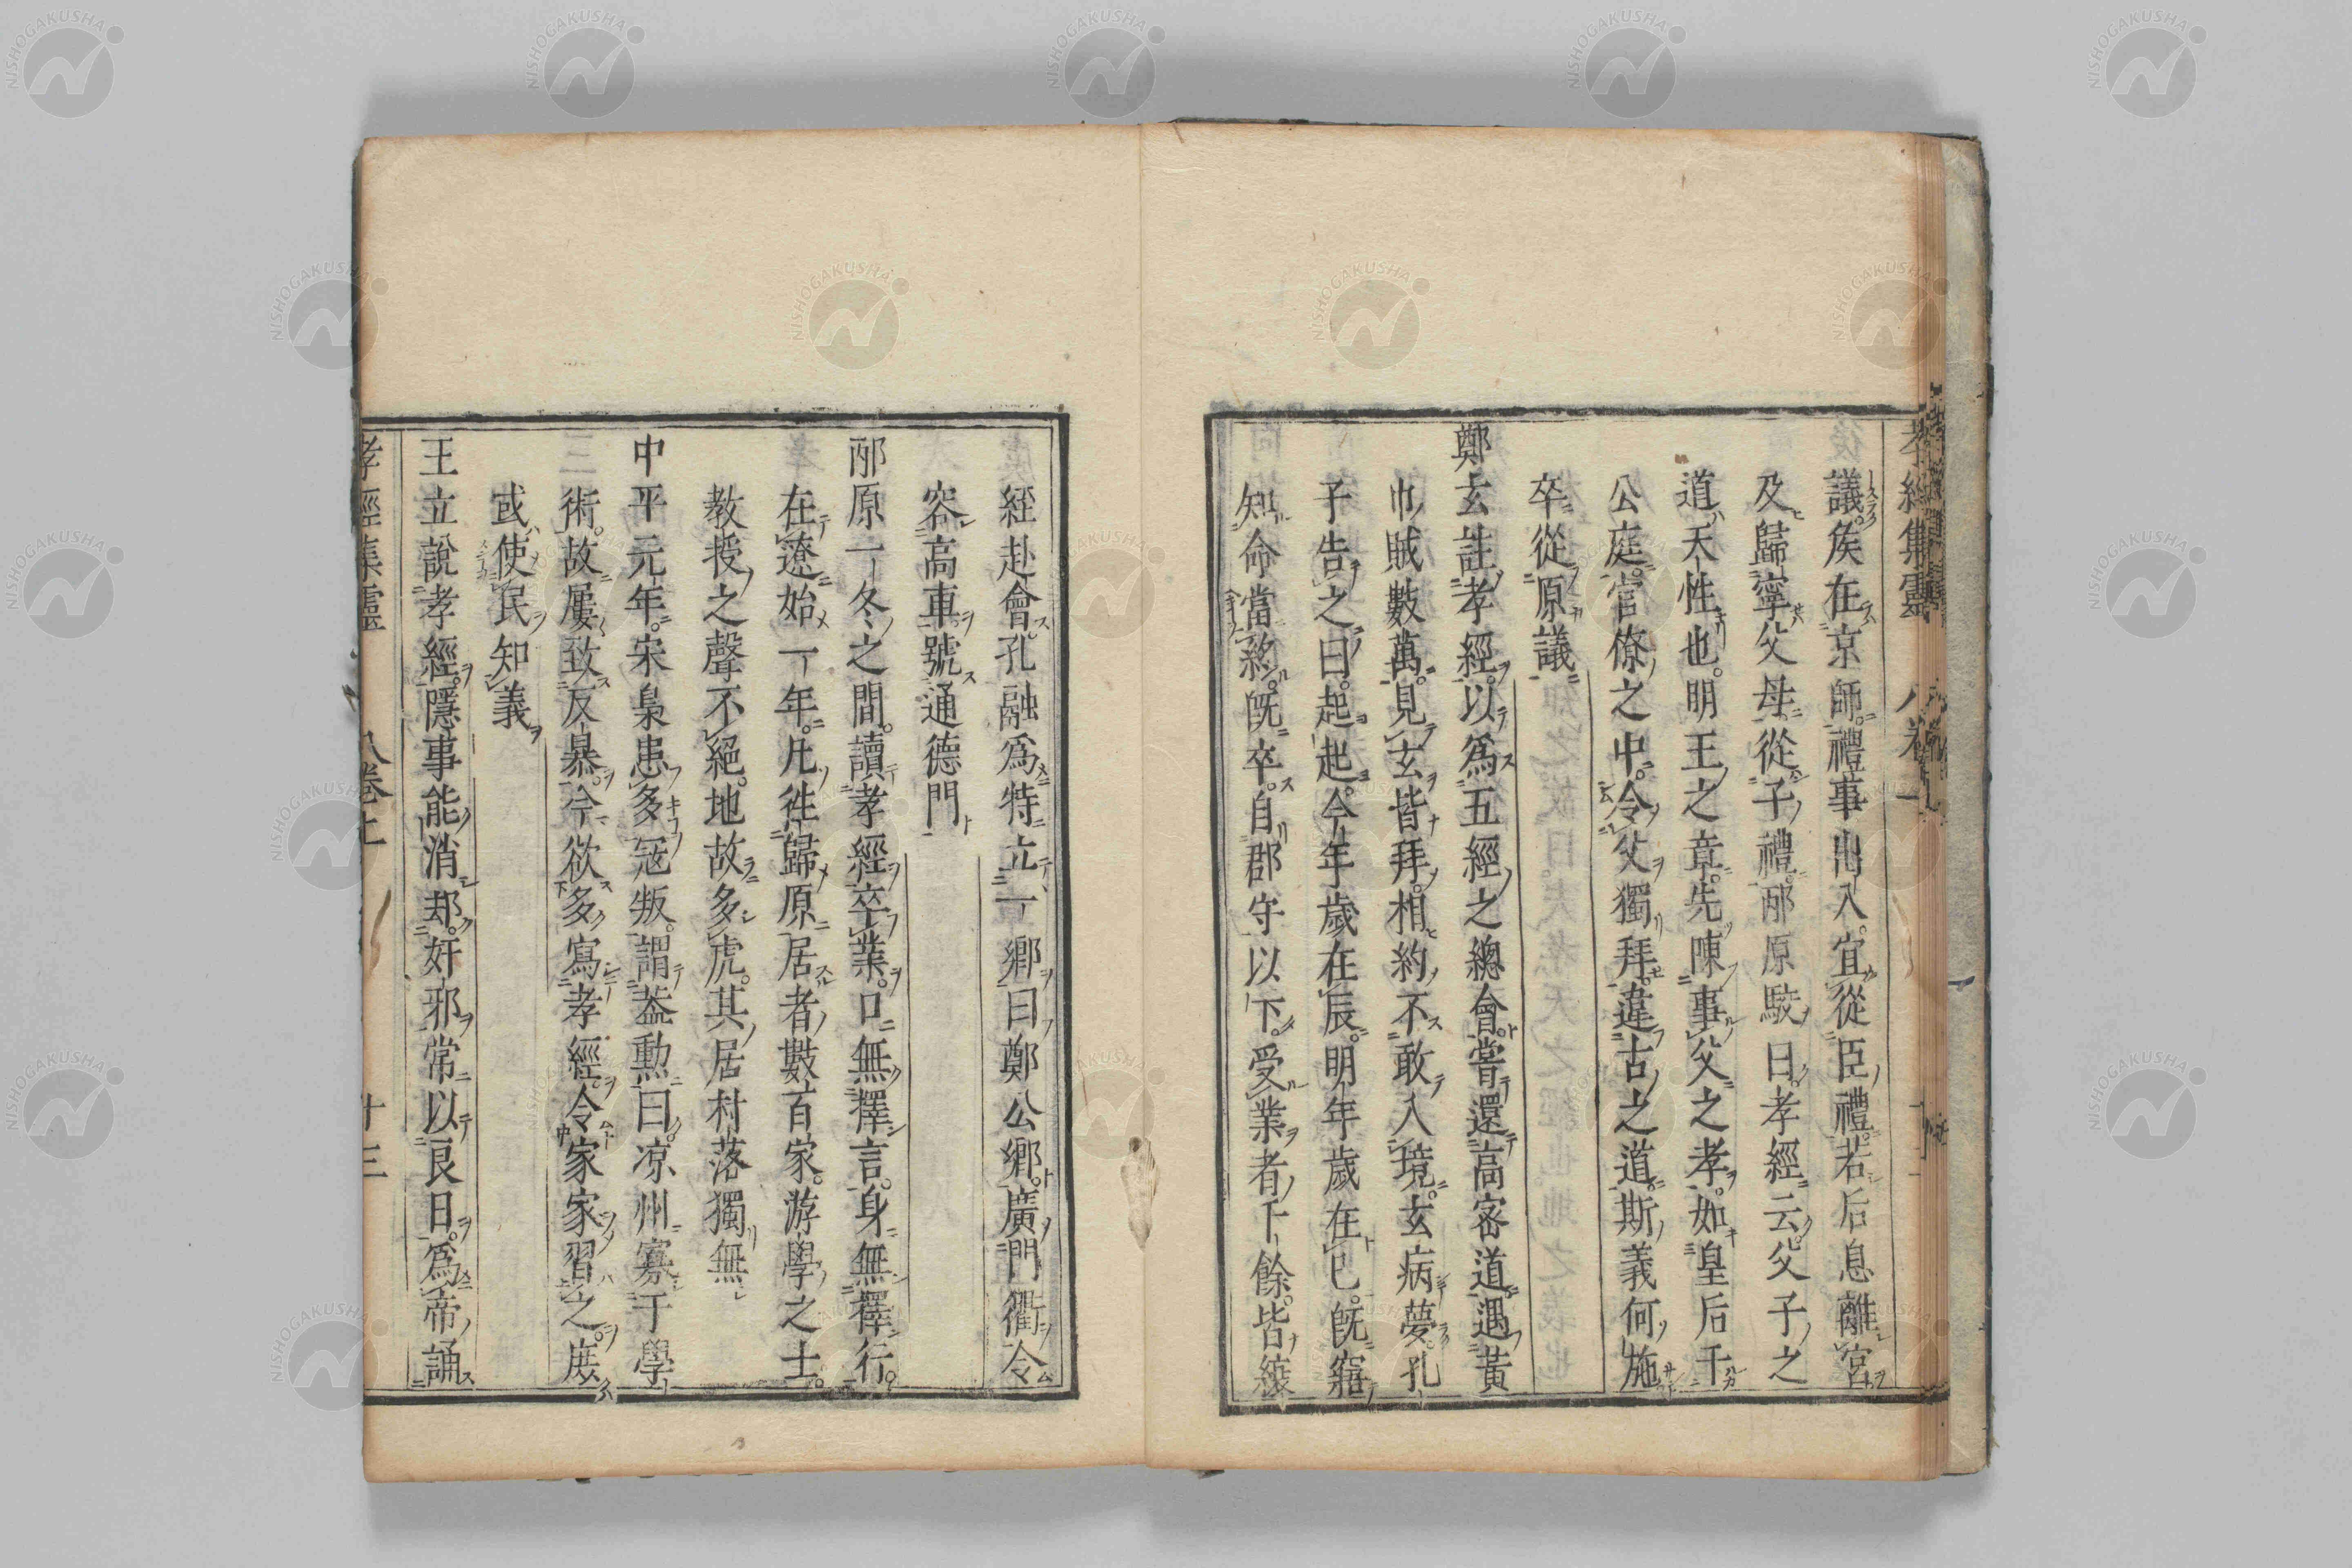 孝經集靈
議。矦在京師。禮事出入。宜從臣禮。若后息離宮
及歸寧父母從子禮。邴原駮曰。孝經云。父子之
道天性也。明王之章。先陳事父之孝。如皇后于
公庭。官僚之中。令父獨拜。違古之道。斯義何施
卒從原議
鄭玄註孝經。以爲五經之總會。嘗還高密道遇黃
巾賊數萬。見玄皆拜。相約不敢入境。玄病夢孔
子告之曰。起起。今年歲在辰。明年歲在巳。旣寤
知命當終。旣卒。自郡守以下。受業者千餘。皆縗
経赴會。孔融爲特立一鄉曰鄭公鄉。廣門衢令
容高車號通德門
邴原一冬之間。讀孝經卒業。口無擇言。身無擇行。
在遼始一年。凡徃歸原居者數百家。游學之士。
教授之聲不絕。地故多虎。其居村落獨無
中平元年。宋梟患多冦叛。謂葢勳曰。凉州寡于學
術。故屢致反暴。今欲多寫孝經。令家家習之。庻
或使民知義
王立說孝經。隱事能消却。奸邪常以良日。爲帝誦
孝經集靈 卷上 十三
NISHOGAKUSHA